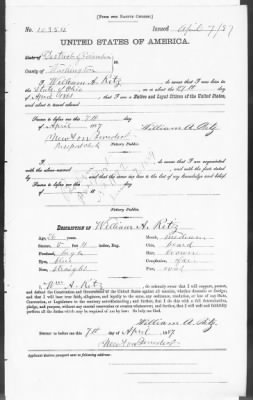 [FORM FOR NATIVE CITIZEN.]
No. Issued April 7/87
UNITED STATES OF AMERICA.
State of District of Columbia
County of Washington
I, William A. Ritz, do swear that I was born in the
State of Ohio, on or about the day
of April that I am a Native and Loyal Citizen of the United States,
and about to travel abroad
Sworn to before me this 7th day
of April 1887 William A. Ritz
Notary Public.
I, am acquainted
with the above-named and with the facts stated
by and that the same are true to the best of my knowledge and belief.
Sworn to before me this day
of
Notary Public.
DESCRIPTION OF William A. Ritz
Age, Mouth, medium
Stature, 5 ft 11 inches, Eng. Chin, beard
Forehead, high Hair, brown
Eyes, blue Complexion, fair
Nose, straight Face, oval
I, Wm. A. Ritz, do solemnly swear that I will support, protect,
and defend the Constitution and Government of the United States against all enemies, whether domestic or foreign;
and that I will bear true faith, allegiance, and loyalty to the same, any ordinance, resolution, or law of any State,
Convention, or Legislature to the contrary notwithstanding; and further, that I do this with a full determination,
pledge, and purpose, without any mental reservation or evasion whatsoever; and further, that I will well and faithfully
perform all the duties which may be required of me by law: So help me God.
William A. Ritz
Sworn to before me this 7th day of April 1887
Notary Public.
Applicant desires passport to be sent to following address: